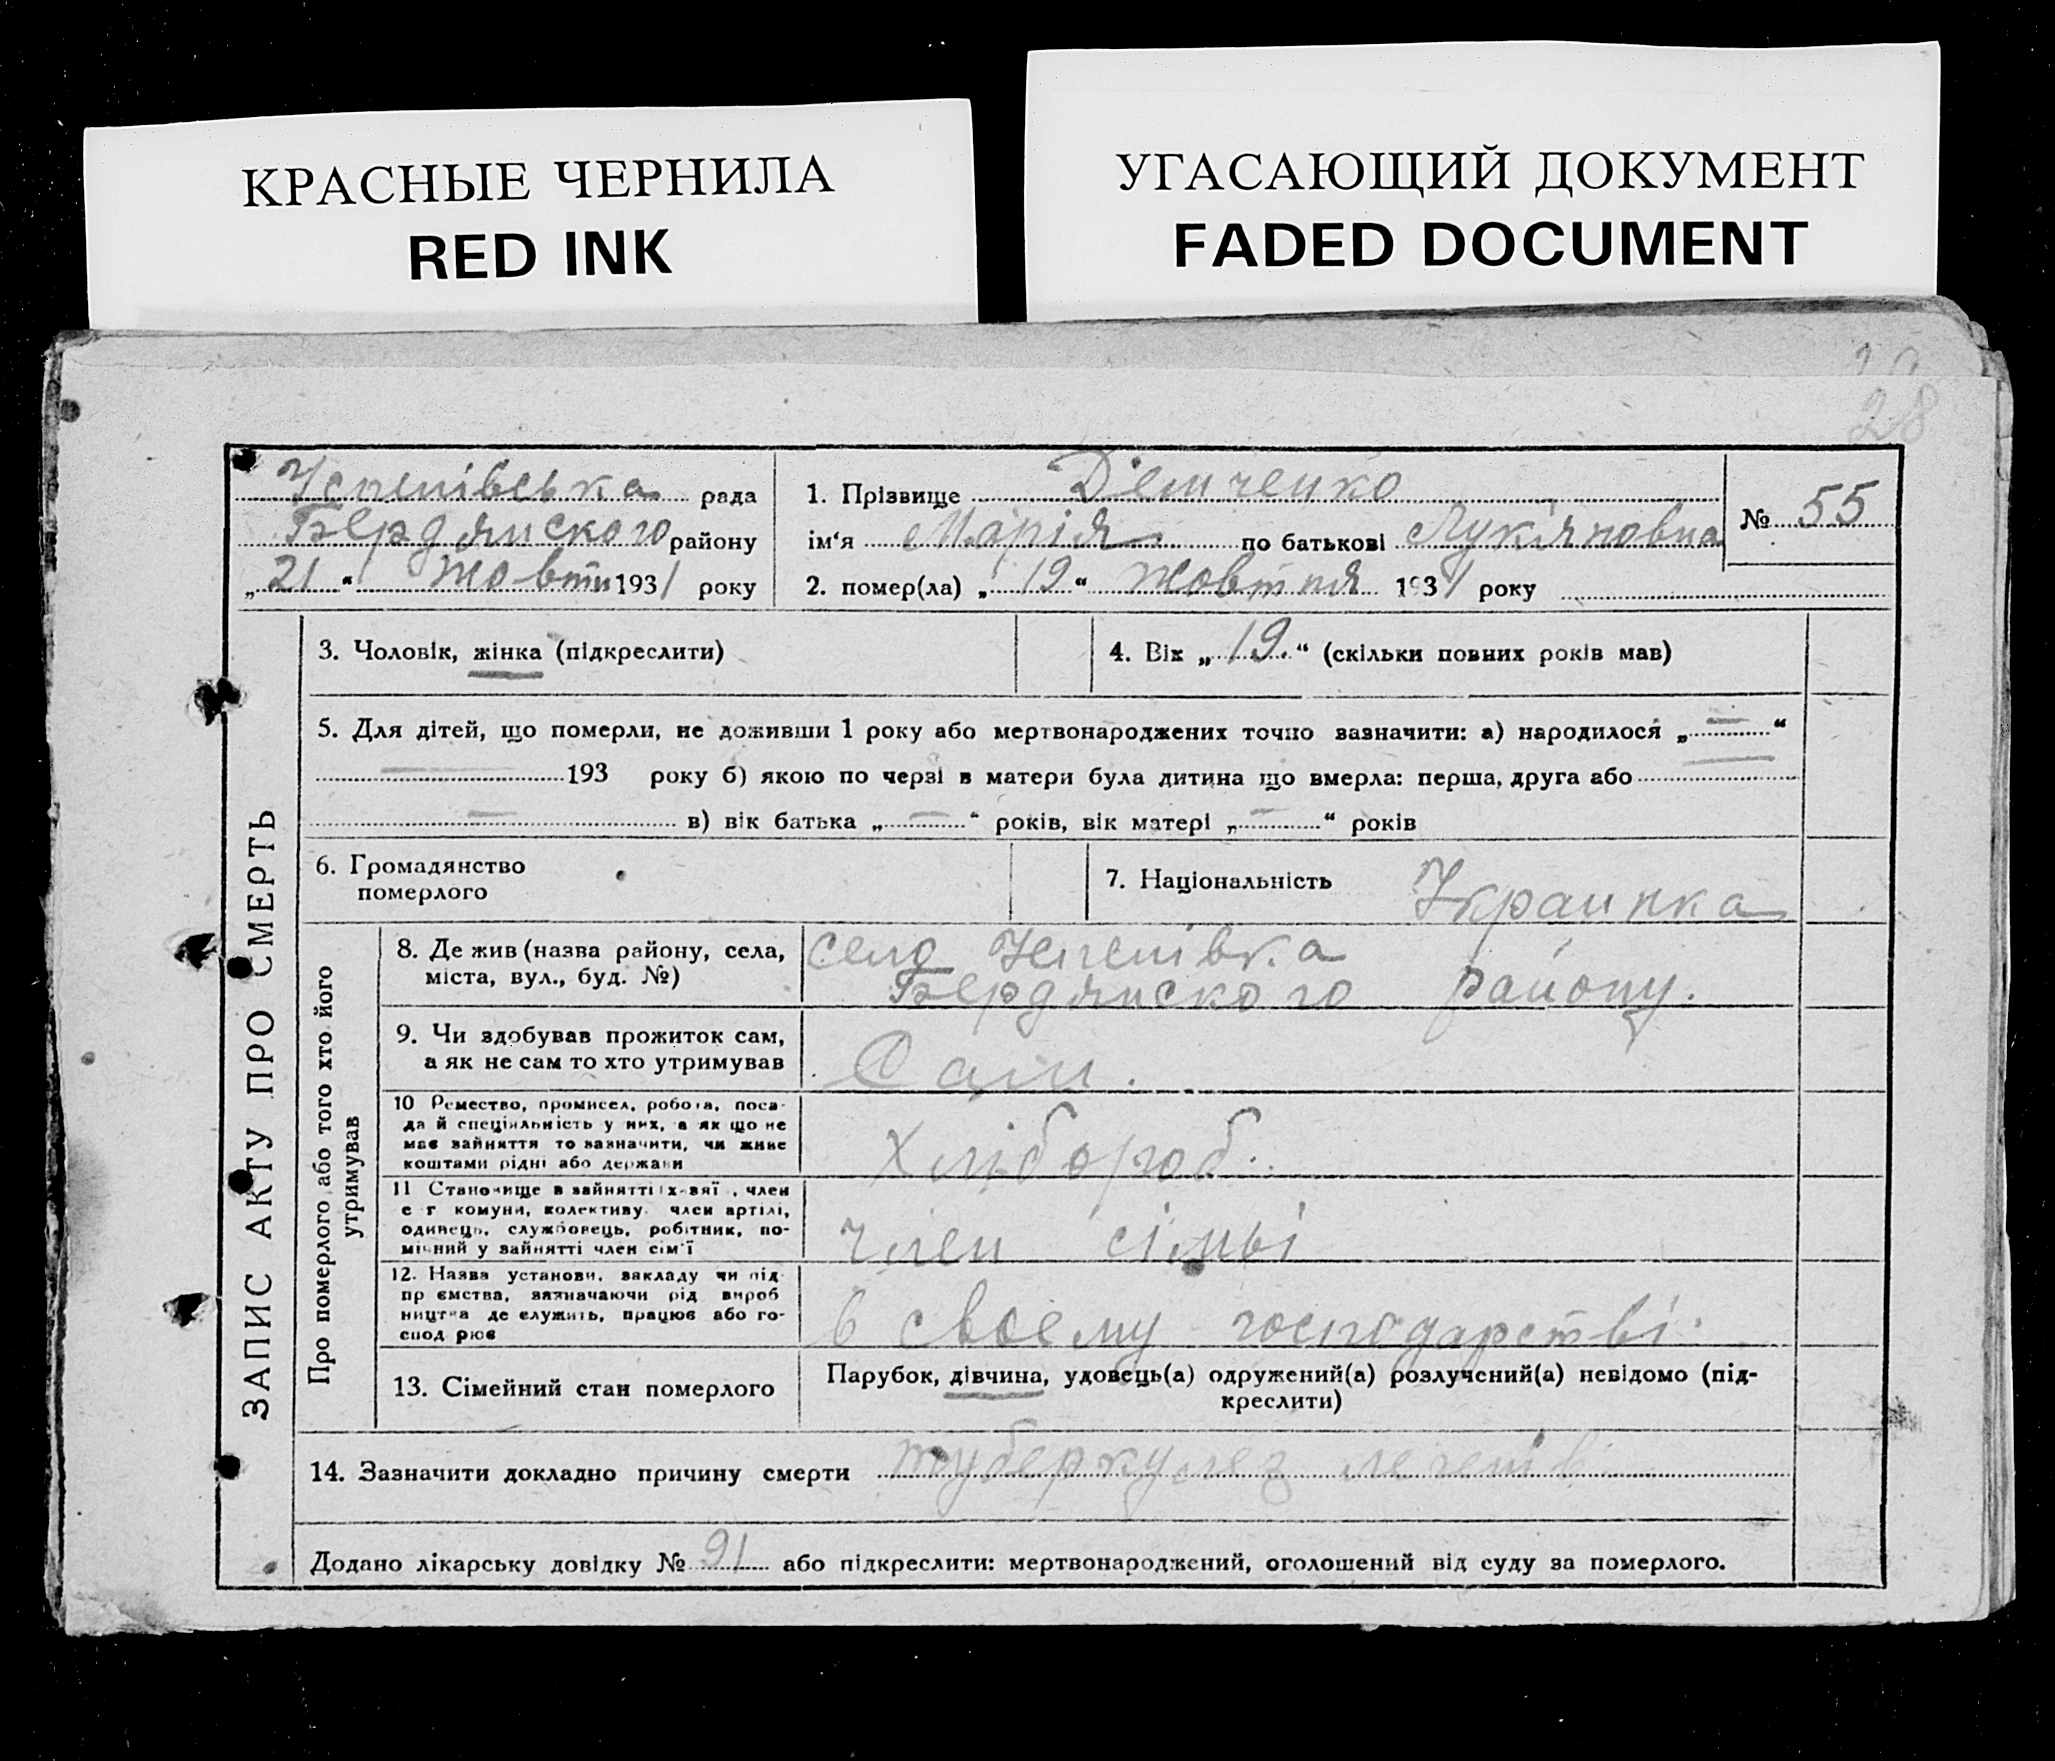 КРАСНЫЕ ЧЕРНИЛА
RED INK
УГАСАЮЩИЙ ДОКУМЕНТ
FADED DOCUMENT
28
Успенівська рада
Бердянского району
„21“ жовтн 1931 року
1. Прізвище Демченко
ім‘я Марія по батькові Лук'яновна
2. помер(ла) „19“ жовтня 1931 року
№ 55
ЗАПИС АКТУ ПРО СМЕРТЬ
3. Чоловік, жінка (підкреслити)
4. Вік „19.“ (скільки повних років мав)
5. Для дітей, що померли, не доживши 1 року або мертвонароджених точно зазначити: а) народилося „—“
— 193 року б) якою по черзі в матери була дитина що вмерла: перша, друга або —
— в) вік батька „—“ років, вік матері „—“ років
6. Громадянство
померлого
7. Національність Украинка
Про померлого або того хто його
утримував
8. Де жив (назва району, села,
міста, вул., буд. №)
село Успенівка
Бердянского району.
9. Чи здобував прожиток сам,
а як не сам то хто утримував
Сам.
10 Ремество, промисел, робота, поса-
да й спеціяльність у них, а як що не
має зайняття то зазначити, чи живе
коштами рідні або держави
Хлібороб.
11 Становище в зайнятті
комуни, колективу. член артілі,
одинець, службовець, робітник, по-
мічний у зайнятті член сім'ї
член сімьі
12. Назва установи, закладу чи під-
пр ємства, зазначаючи рід вироб
ництва де служить, працює або го-
спод рює
в своему господарстві.
13. Сімейний стан померлого
Парубок, дівчина, удовець(а) одружений(а) розлучений(а) невідомо (під-
креслити)
14. Зазначити докладно причину смерти туберкулез легенів
Додано лікарську довідку № 91 або підкреслити: мертвонароджений, оголошений від суду за померлого.